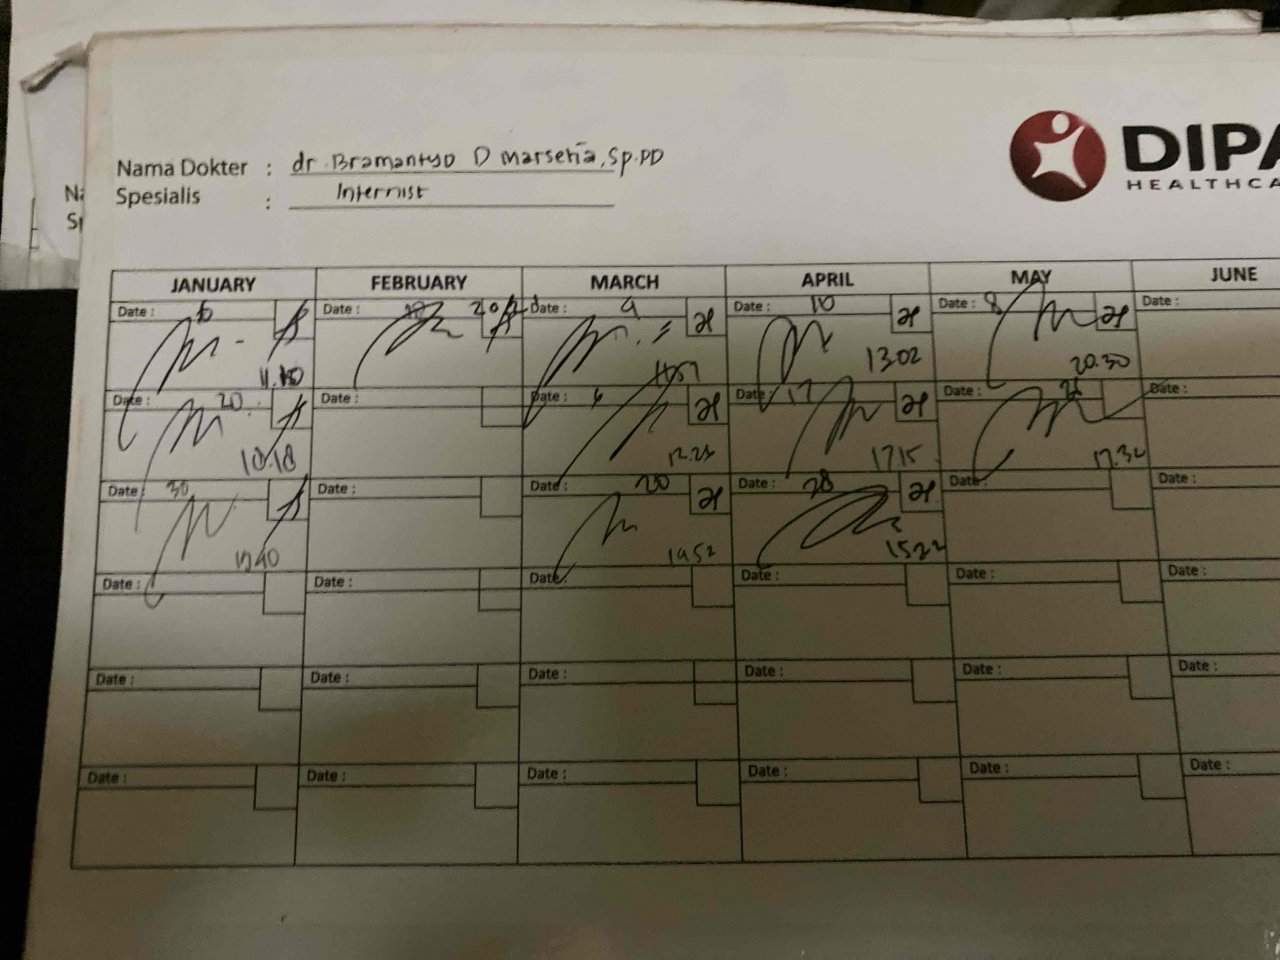 DIPA
HEALTHCA
Nama Dokter : dr. Bramantyo D Marsetia, Sp.PD
Spesialis : Internist
Na
Sp
JANUARY FEBRUARY MARCH APRIL MAY JUNE
Date : 6 Date : Date : 9 Date : 10 Date : 8 Date :
13.02 20.30
Date : 20 Date : Date : Date : 17 Date : Date :
18.18 12.23 17.15 17.32
Date : 30 Date : Date : 20 Date : 28 Date : Date :
19.52 15.22
Date : Date : Date : Date : Date : Date :
Date : Date : Date : Date : Date : Date :
Date : Date : Date : Date : Date : Date :